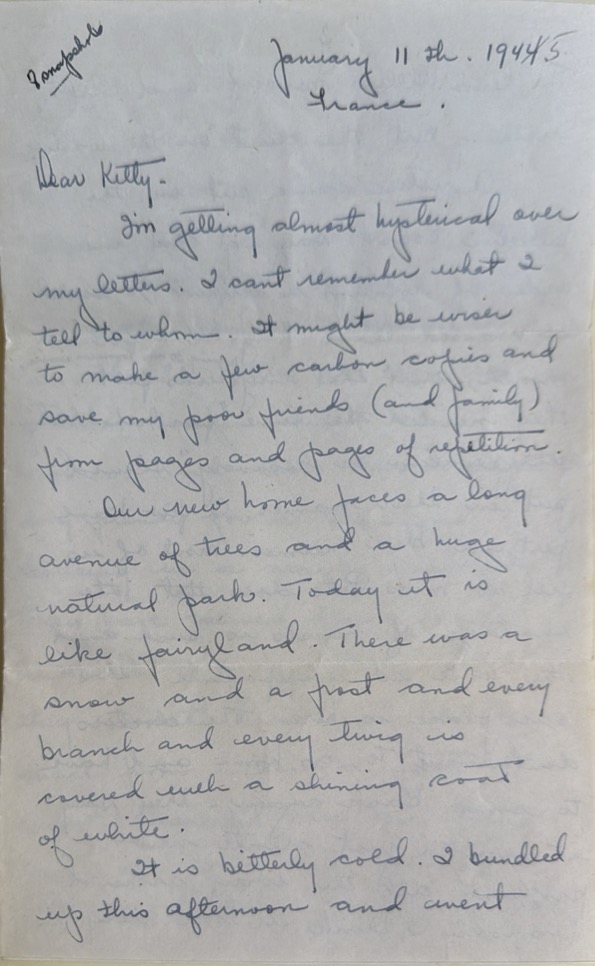 snapshots
January 11 th. 19445
France.
Dear Kitty-
I'm getting almost hysterical over
my letters. I cant remember what I
tell to whom. It might be wiser
to make a few carbon copies and
save my poor friends (and family)
from pages and pages of repetition.
Our new home faces a long
avenue of trees and a huge
natural park. Today it is
like fairyland. There was a
snow and a frost and every
branch and every twig is
covered with a shining coat
of white.
It is bitterly cold. I bundled
up this afternoon and went